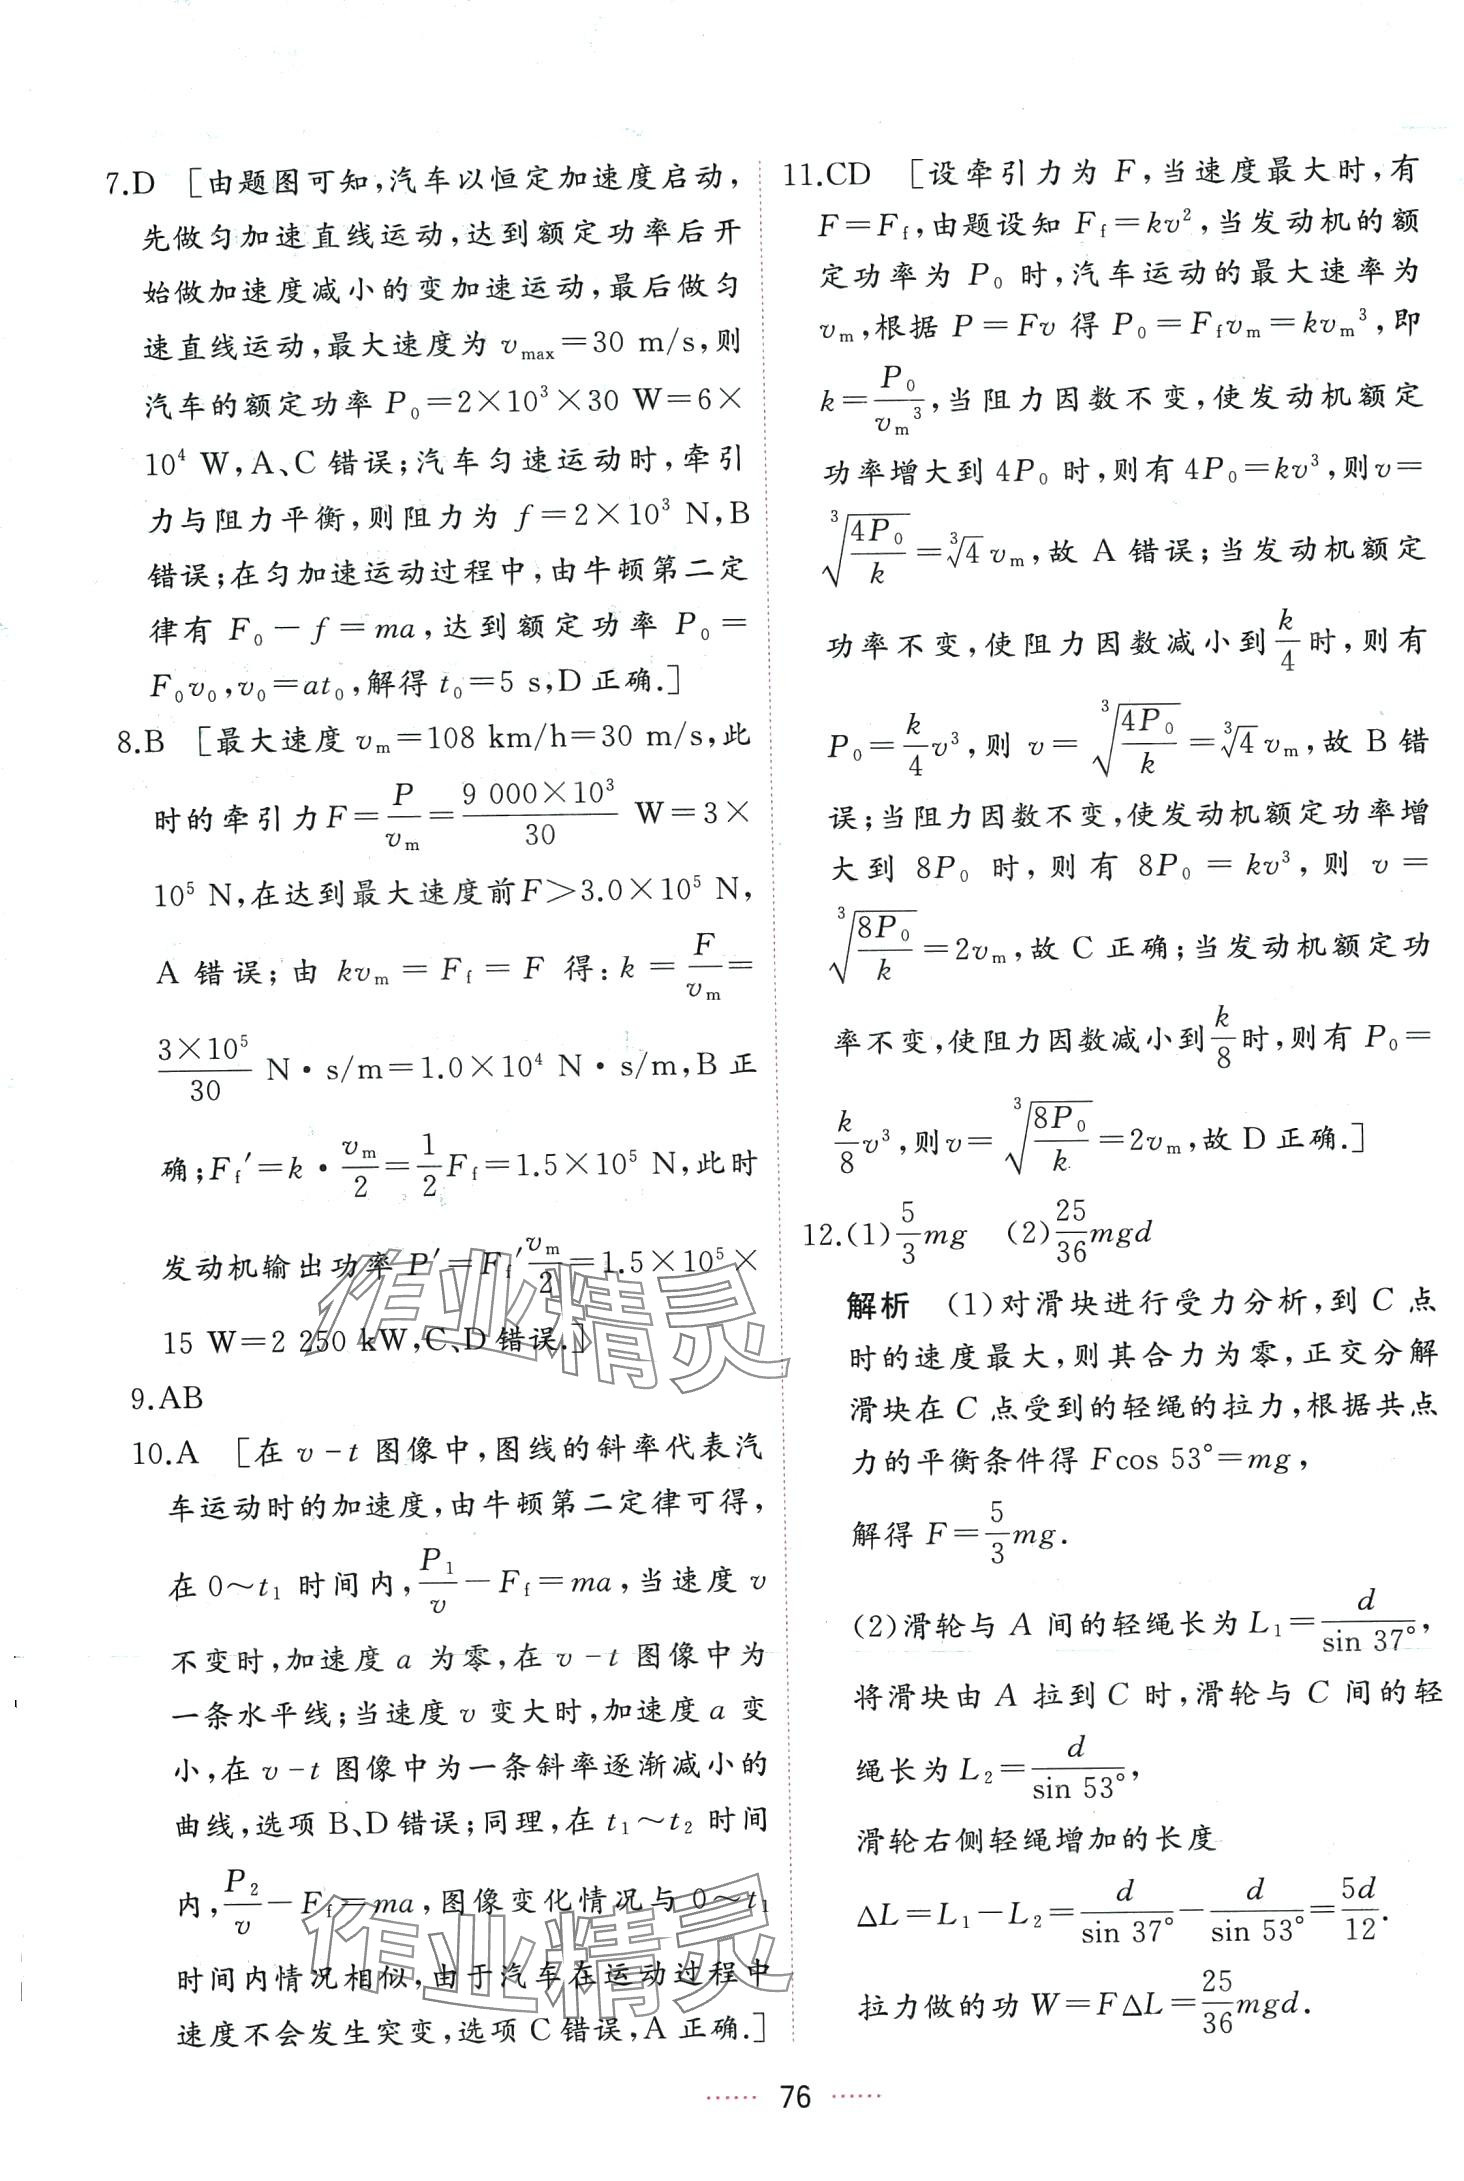 7.D [由题图可知,汽车以恒定加速度启动,
先做匀加速直线运动,达到额定功率后开
始做加速度减小的变加速运动,最后做匀
速直线运动,最大速度为 v_max=30 m/s,则
汽车的额定功率 P₀=2×10³×30 W=6×
10⁴ W,A、C 错误;汽车匀速运动时,牵引
力与阻力平衡,则阻力为 f=2×10³ N,B
错误;在匀加速运动过程中,由牛顿第二定
律有 F₀-f=ma,达到额定功率 P₀=
F₀v₀,v₀=at₀,解得 t₀=5 s,D 正确.]
8.B [最大速度 v_m=108 km/h=30 m/s,此
时的牵引力 F=P/v_m=(9 000×10³)/30 W=3×
10⁵ N,在达到最大速度前F>3.0×10⁵ N,
A 错误;由 kv_m=F_f=F 得:k=F/v_m=
(3×10⁵)/30 N·s/m=1.0×10⁴ N·s/m,B 正
确;F_f′=k·v_m/2=1/2 F_f=1.5×10⁵ N,此时
发动机输出功率 P′=F_f′ v_m/2=1.5×10⁵×
15 W=2 250 kW,C、D 错误.]
9.AB
10.A [在 v-t 图像中,图线的斜率代表汽
车运动时的加速度,由牛顿第二定律可得,
在 0~t₁ 时间内,P₁/v-F_f=ma,当速度 v
不变时,加速度 a 为零,在 v-t 图像中为
一条水平线;当速度 v 变大时,加速度 a 变
小,在 v-t 图像中为一条斜率逐渐减小的
曲线,选项 B、D 错误;同理,在 t₁~t₂ 时间
内,P₂/v-F_f=ma,图像变化情况与 0~t₁
时间内情况相似,由于汽车在运动过程中
速度不会发生突变,选项 C 错误,A 正确.]
11.CD [设牵引力为 F,当速度最大时,有
F=F_f,由题设知 F_f=kv²,当发动机的额
定功率为 P₀ 时,汽车运动的最大速率为
v_m,根据 P=Fv 得 P₀=F_f v_m=kv_m³,即
k=P₀/v_m³,当阻力因数不变,使发动机额定
功率增大到 4P₀ 时,则有 4P₀=kv³,则v=
∛(4P₀/k)=∛4 v_m,故 A 错误;当发动机额定
功率不变,使阻力因数减小到 k/4 时,则有
P₀=k/4 v³,则 v=∛(4P₀/k)=∛4 v_m,故 B 错
误;当阻力因数不变,使发动机额定功率增
大到 8P₀ 时,则有 8P₀=kv³,则 v=
∛(8P₀/k)=2v_m,故 C 正确;当发动机额定功
率不变,使阻力因数减小到 k/8 时,则有 P₀=
k/8 v³,则v=∛(8P₀/k)=2v_m,故 D 正确.]
12.(1)5/3 mg (2)25/36 mgd
解析 (1)对滑块进行受力分析,到 C 点
时的速度最大,则其合力为零,正交分解
滑块在 C 点受到的轻绳的拉力,根据共点
力的平衡条件得 Fcos 53°=mg,
解得 F=5/3 mg.
(2)滑轮与 A 间的轻绳长为 L₁=d/sin 37°,
将滑块由 A 拉到 C 时,滑轮与 C 间的轻
绳长为 L₂=d/sin 53°,
滑轮右侧轻绳增加的长度
ΔL=L₁-L₂=d/sin 37°-d/sin 53°=5d/12.
拉力做的功 W=FΔL=25/36 mgd.
作业精灵
作业精灵
······ 76 ······